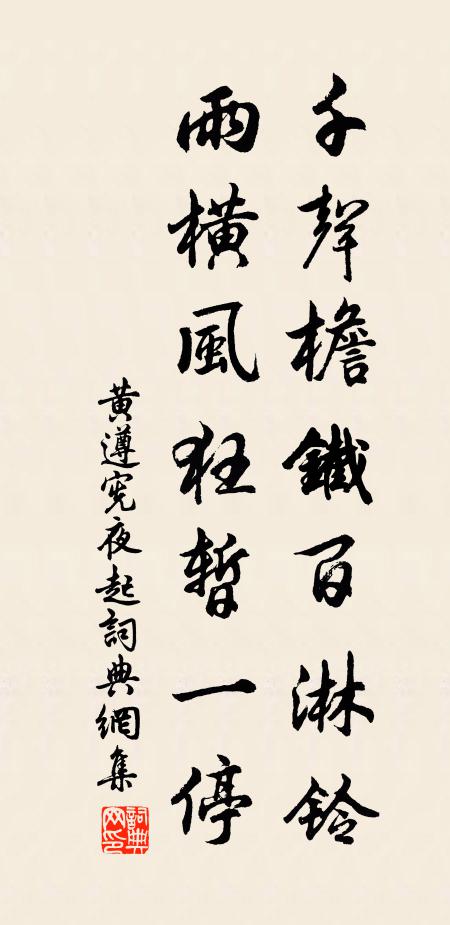 千聲檐鐵百淋鈴
雨橫風狂暫一停
黃遵憲夜起詞典網集
詞典网印